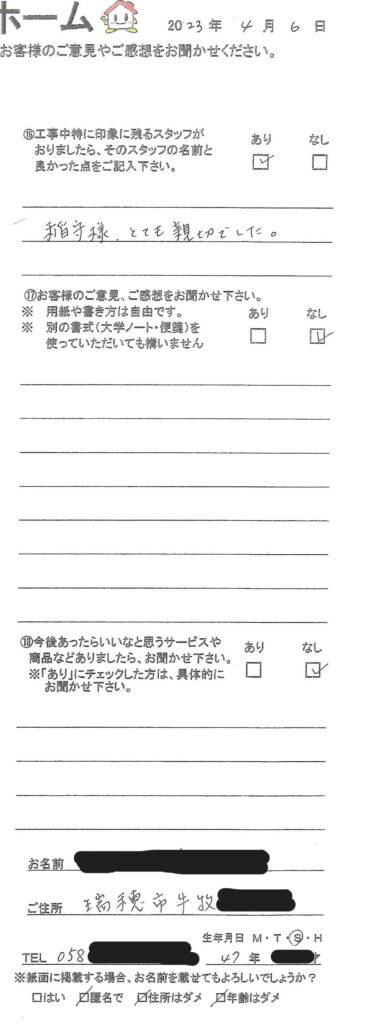 ホーム 2023年 4月 6日
お客様のご意見やご感想をお聞かせください。
⑯工事中特に印象に残るスタッフが あり なし
おりましたら、そのスタッフの名前と
良かった点をご記入下さい。 ☑ □
稲守様、とても親切でした。
⑰お客様のご意見、ご感想をお聞かせ下さい。
※ 用紙や書き方は自由です。 あり なし
※ 別の書式(大学ノート・便箋)を □ ☑
使っていただいても構いません
⑱今後あったらいいなと思うサービスや あり なし
商品などありましたら、お聞かせ下さい。
※「あり」にチェックした方は、具体的に □ ☑
お聞かせ下さい。
お名前
ご住所 瑞穂市牛牧
生年月日 M・T・S・H
TEL 058 47年
※紙面に掲載する場合、お名前を載せてもよろしいでしょうか?
□はい ☑匿名で ☑住所はダメ ☑年齢はダメ